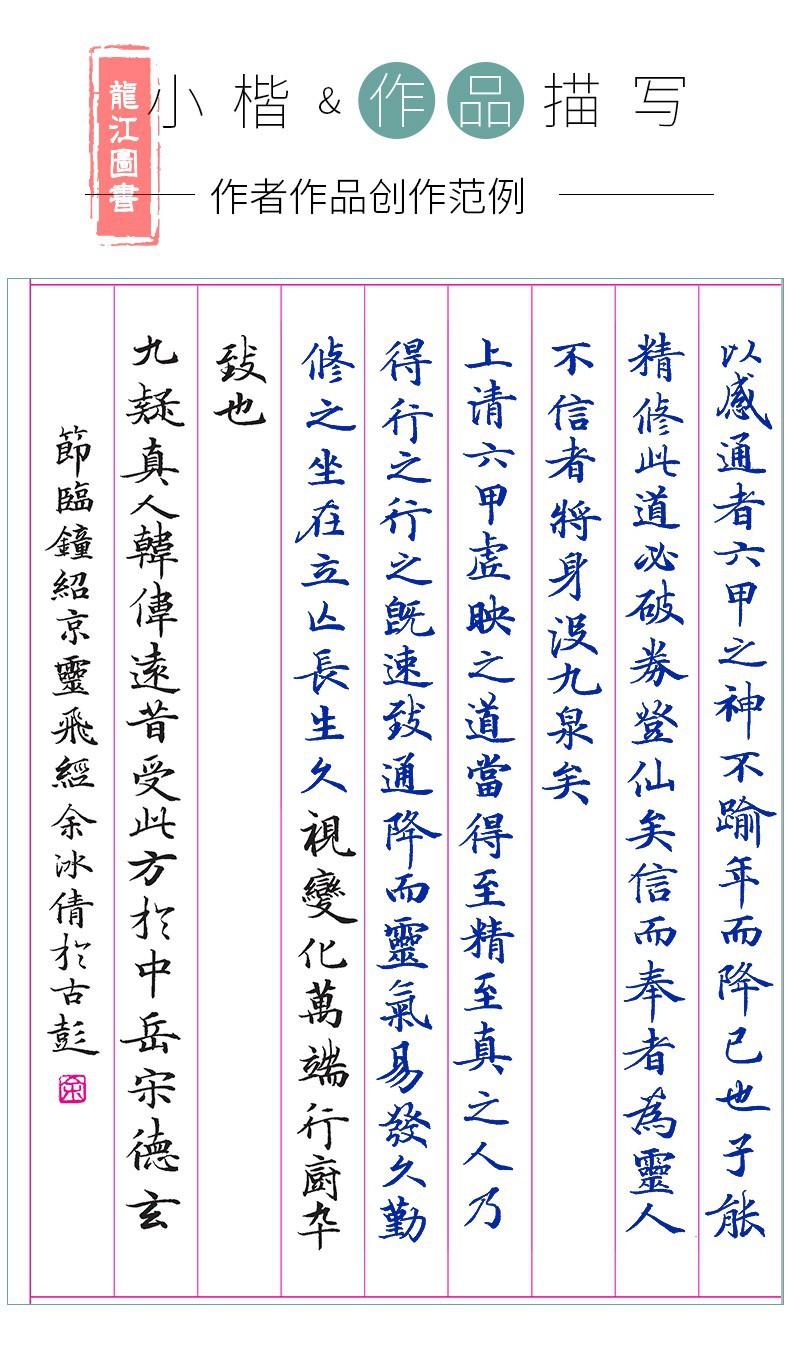 龍江圖書
小楷&作品描写
作者作品创作范例
以感通者六甲之神不踰年而降已也子能
精修此道必破券登仙矣信而奉者為靈人
不信者將身没九泉矣
上清六甲虛映之道當得至精至真之人乃
得行之行之既速致通降而靈氣易發久勤
修之坐在立亾長生久視變化萬端行廚卒
致也
九疑真人韓偉遠昔受此方於中岳宋德玄
節臨鐘紹京靈飛經余冰倩於古彭
余